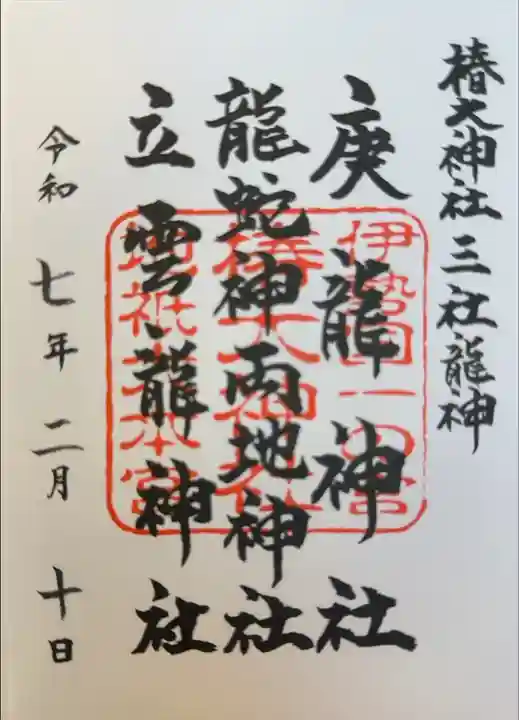 椿大神社 三社龍神
庚龍神社
龍蛇神両地神社
立雲龍神社
令和 七年 二月 十日
伊勢国一の宮
椿大神社
地祇大本宮